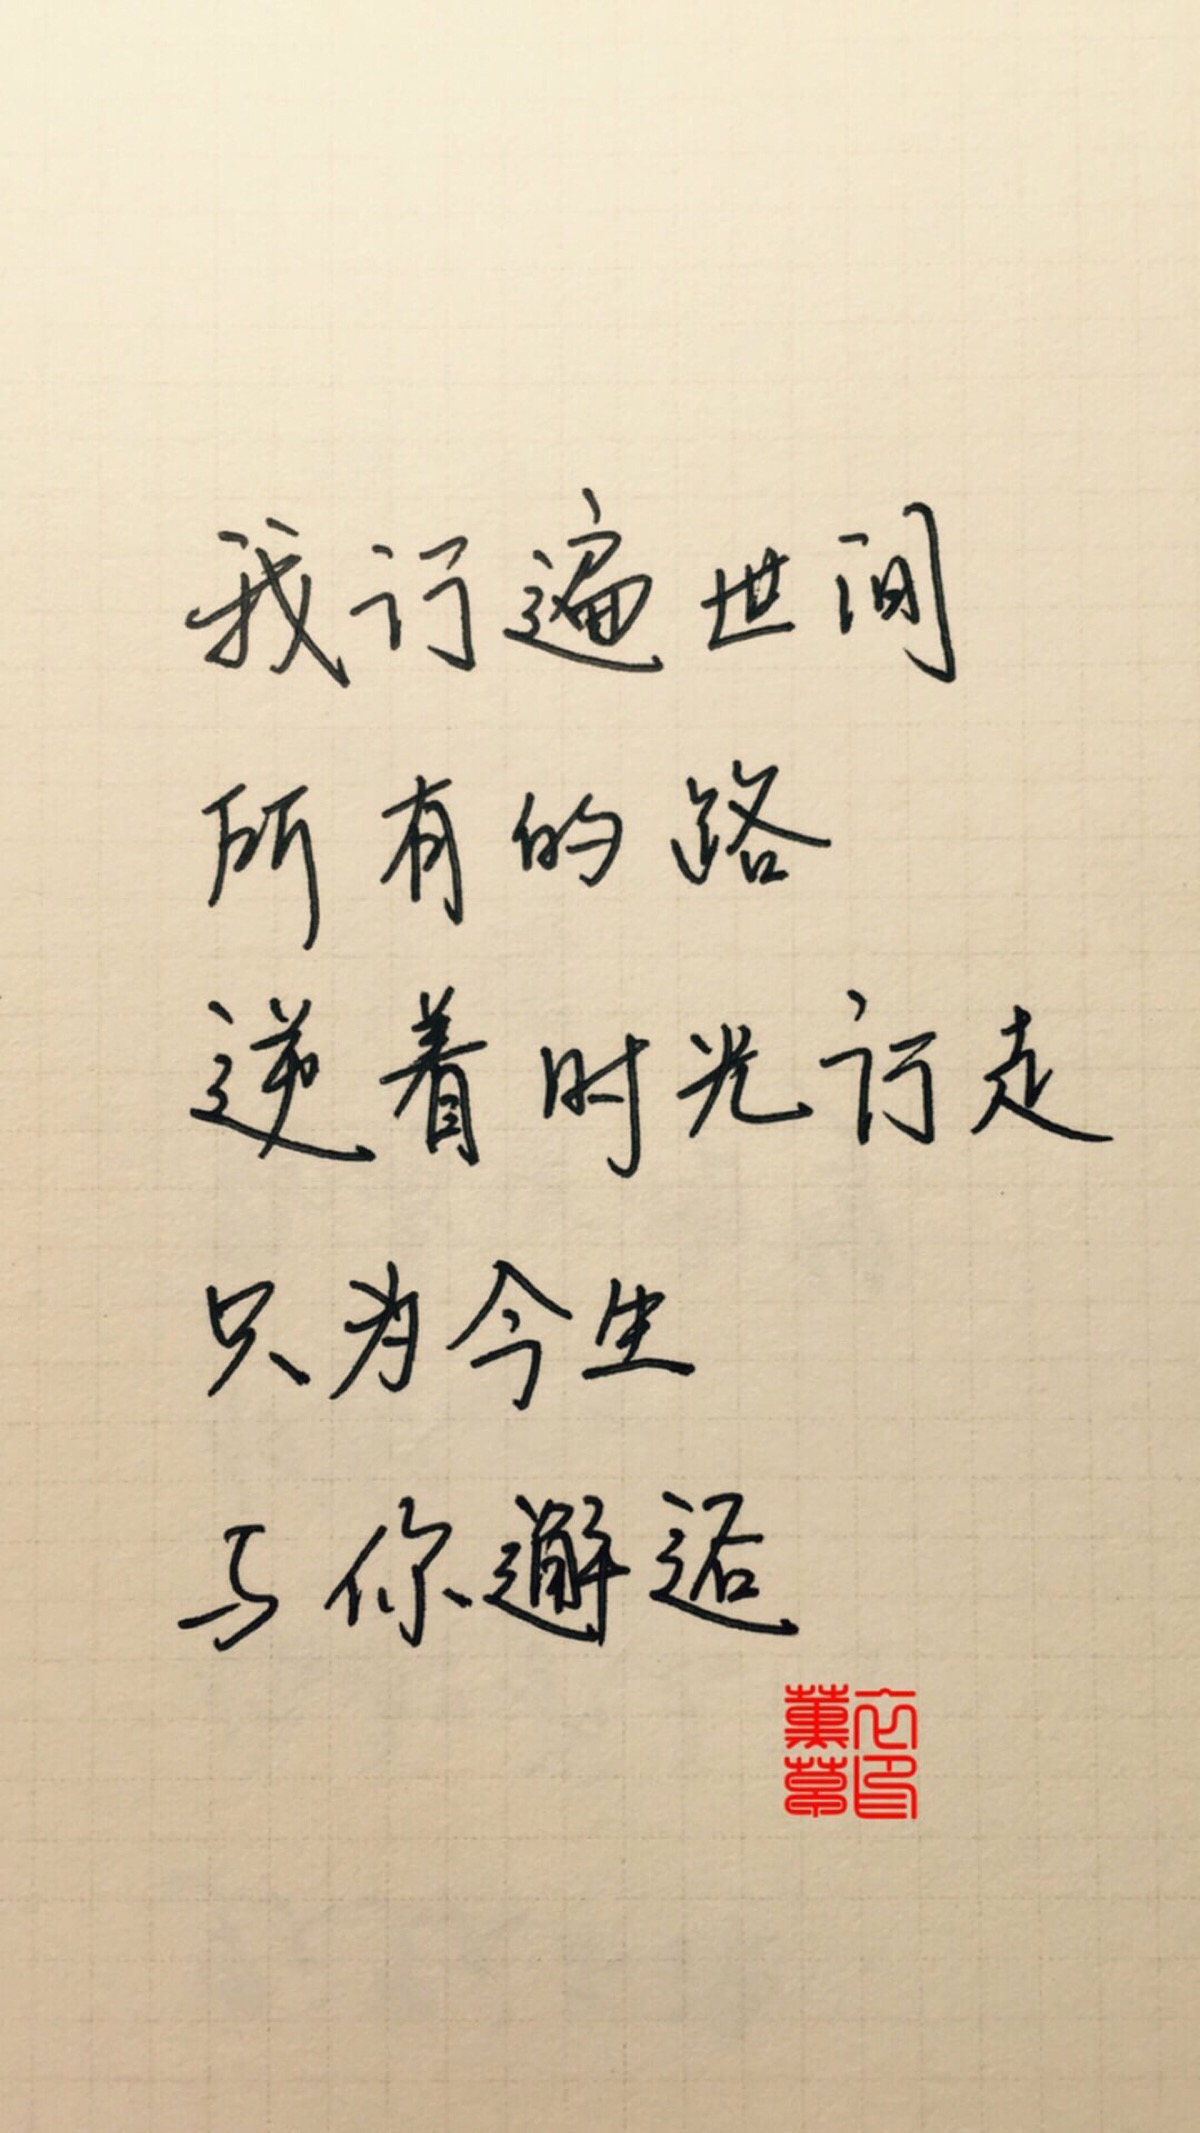 我行遍世间
所有的路
逆着时光行走
只为今生
与你邂逅
六月
薰草